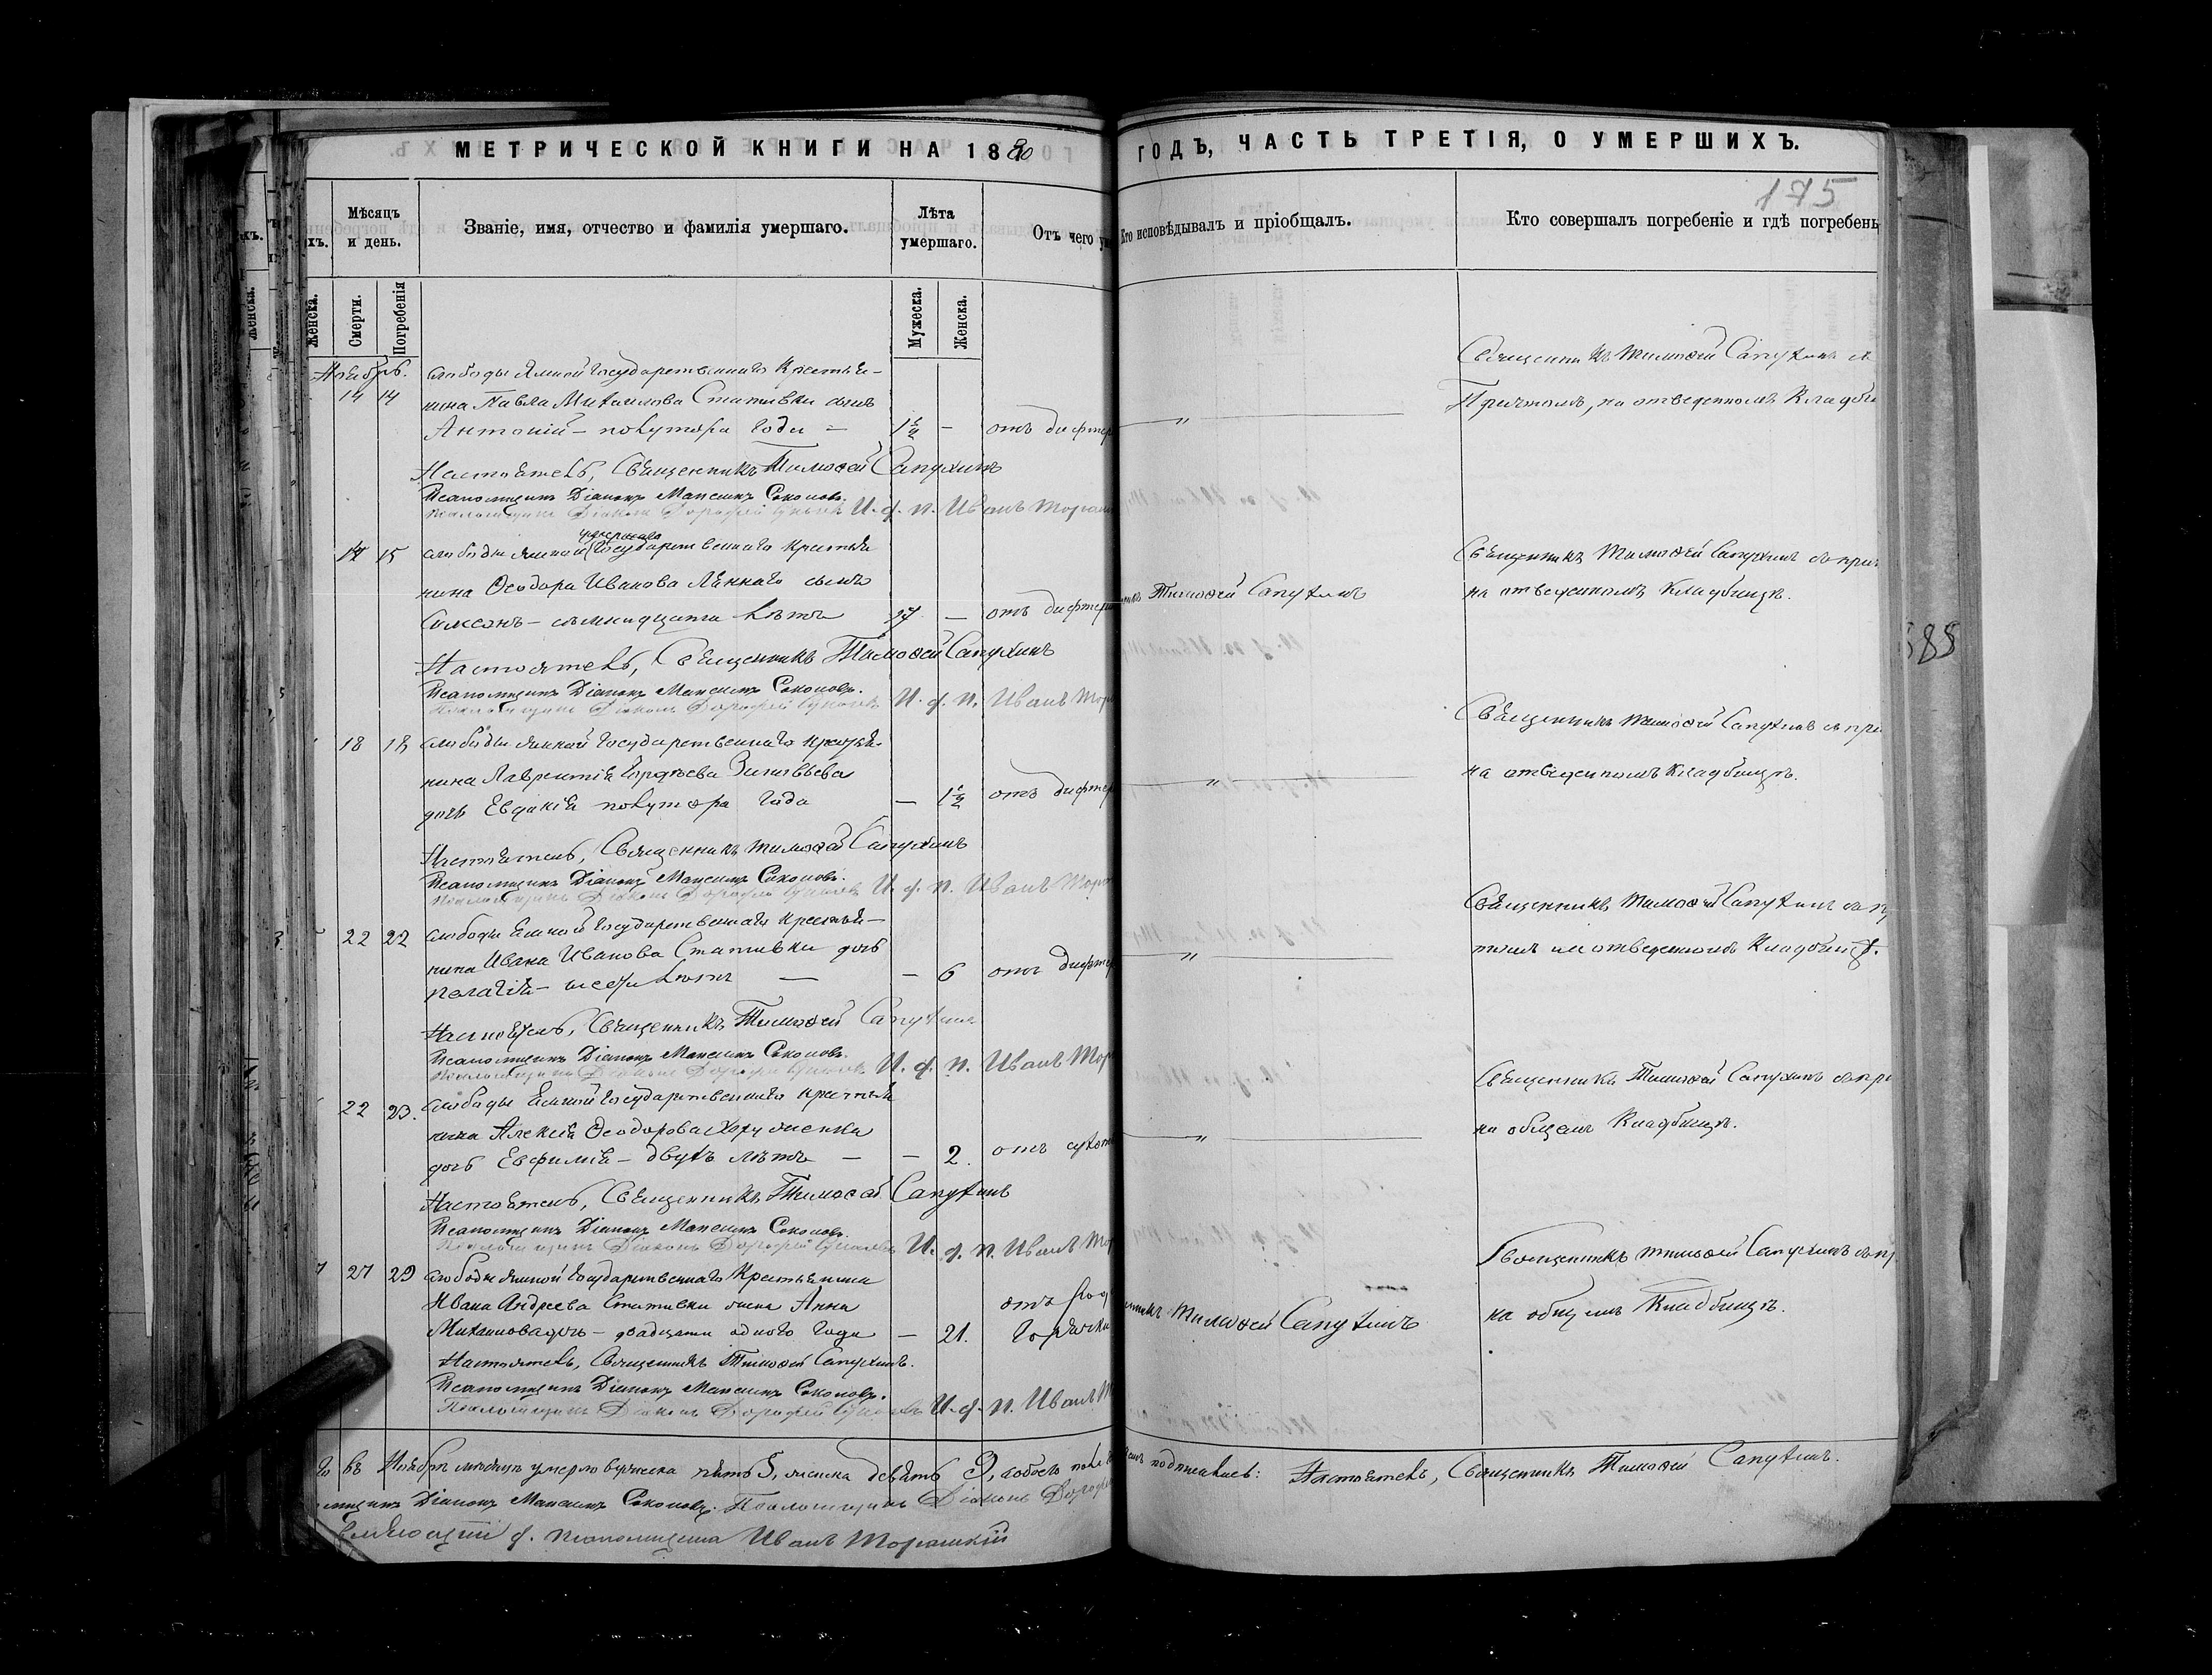 МЕТРИЧЕСКОЙ КНИГИ НА 1880 ГОДЪ, ЧАСТЬ ТРЕТІЯ, О УМЕРШИХЪ.
175
Мѣсяцъ и день.
Званіе, имя, отчество и фамилія умершаго.
Лѣта умершаго.
Отъ чего
Кто исповѣдывалъ и пріобщалъ.
Кто совершалъ погребеніе и гдѣ погребены
Женска.
Смерти.
Погребенія
Мужеска.
Женска.
Ноябрь.
слободы Ямной Государственнаго Крестья-
14 14 нина Павла Михаилова Стативки сынъ
Антоній – полутора года – 1½ – отъ дифтер
Священникъ Тимоѳей Сапухинъ
Причтомъ, на отведенномъ Кладби
Настоятель, Священникъ Тимоѳей Сапухинъ
Псаломщикъ Діаконъ Максимъ Соколовъ.
Псаломщикъ Діаконъ Дорофей И. д. п. Иванъ
умершаго
14 15 слободы Ямной Государственнаго Крестья
нина Ѳеодора Иванова сынъ
Симеонъ – семнадцати лѣтъ 17 – отъ дифтер
Тимоѳей Сапухинъ
Священникъ Тимоѳей Сапухинъ съ прич
на отведенномъ Кладбищѣ.
Настоятель, Священникъ Тимоѳей Сапухинъ
Псаломщикъ Діаконъ Максимъ Соколовъ.
Псаломщикъ Діаконъ Дорофей И. д. п. Иванъ
18 18 слободы Ямной Государственнаго Крестья-
нина Лаврентія Зиновьева
дочь Евдокія полутора года – 1½ отъ дифтер
Священникъ Тимоѳей Сапухинъ съ при
на отведенномъ Кладбищѣ.
Настоятель, Священникъ Тимоѳей Сапухинъ
Псаломщикъ Діаконъ Максимъ Соколовъ.
Псаломщикъ Діаконъ Дорофей И. д. п. Иванъ
22 22 слободы Ямной Государственнаго Крестья-
нина Ивана Иванова Стативки дочь
Пелагія – шести лѣтъ – – 6 отъ дифтер
Священникъ Тимоѳей Сапухинъ съ пр
на отведенномъ Кладбищѣ.
Настоятель, Священникъ Тимоѳей Сапухинъ
Псаломщикъ Діаконъ Максимъ Соколовъ.
Псаломщикъ Діаконъ Дорофей И. д. п. Иванъ
22 23. слободы Ямной Государственнаго Крестья
нина Алексія Ѳеодорова
дочь Евфимія – двухъ лѣтъ – – 2. отъ
Священникъ Тимоѳей Сапухинъ съ пр
на общемъ Кладбищѣ.
Настоятель, Священникъ Тимоѳей Сапухинъ
Псаломщикъ Діаконъ Максимъ Соколовъ.
Псаломщикъ Діаконъ Дорофей И. д. п. Иванъ
27 29 слободы Ямной Государственнаго Крестьянина
Ивана Андреева Стативки жена Анна
Михаилова дочь – двадцати одного года – 21. отъ горячки
Тимоѳей Сапухинъ
Священникъ Тимоѳей Сапухинъ съ пр
на общемъ Кладбищѣ.
Настоятель, Священникъ Тимоѳей Сапухинъ.
Псаломщикъ Діаконъ Максимъ Соколовъ.
Псаломщикъ Діаконъ Дорофей И. д. п. Иванъ
въ Ноябрѣ мѣсяцѣ умерло мужеска пять 5, женска девять 9, обоего пола подписались: Настоятель, Священникъ Тимоѳей Сапухинъ.
Діаконъ Максимъ Соколовъ. Псаломщикъ Діаконъ
д. псаломщика Иванъ